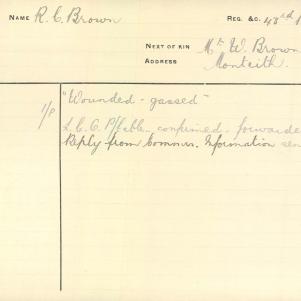 NAME R. C. Brown
REG. &C. 43rd
NEXT OF KIN Mr W. Brown
ADDRESS Monteith.
1/P "Wounded - gassed"
confirmed - forwarde
Reply from Commrs. Information sen